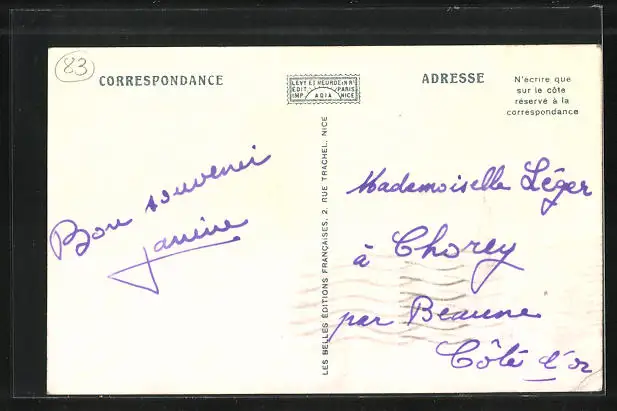 83
CORRESPONDANCE
LEVY ET NEURDEIN Rs
EDIT. PARIS
IMP ADIA NICE
ADRESSE
N'écrire que
sur le côte
réservé à la
correspondance
Bon souvenir
Janine
LES BELLES EDITIONS FRANÇAISES, 2, RUE TRACHEL, NICE
Mademoiselle Léger
à Chorey
par Beaune
Côte d'or